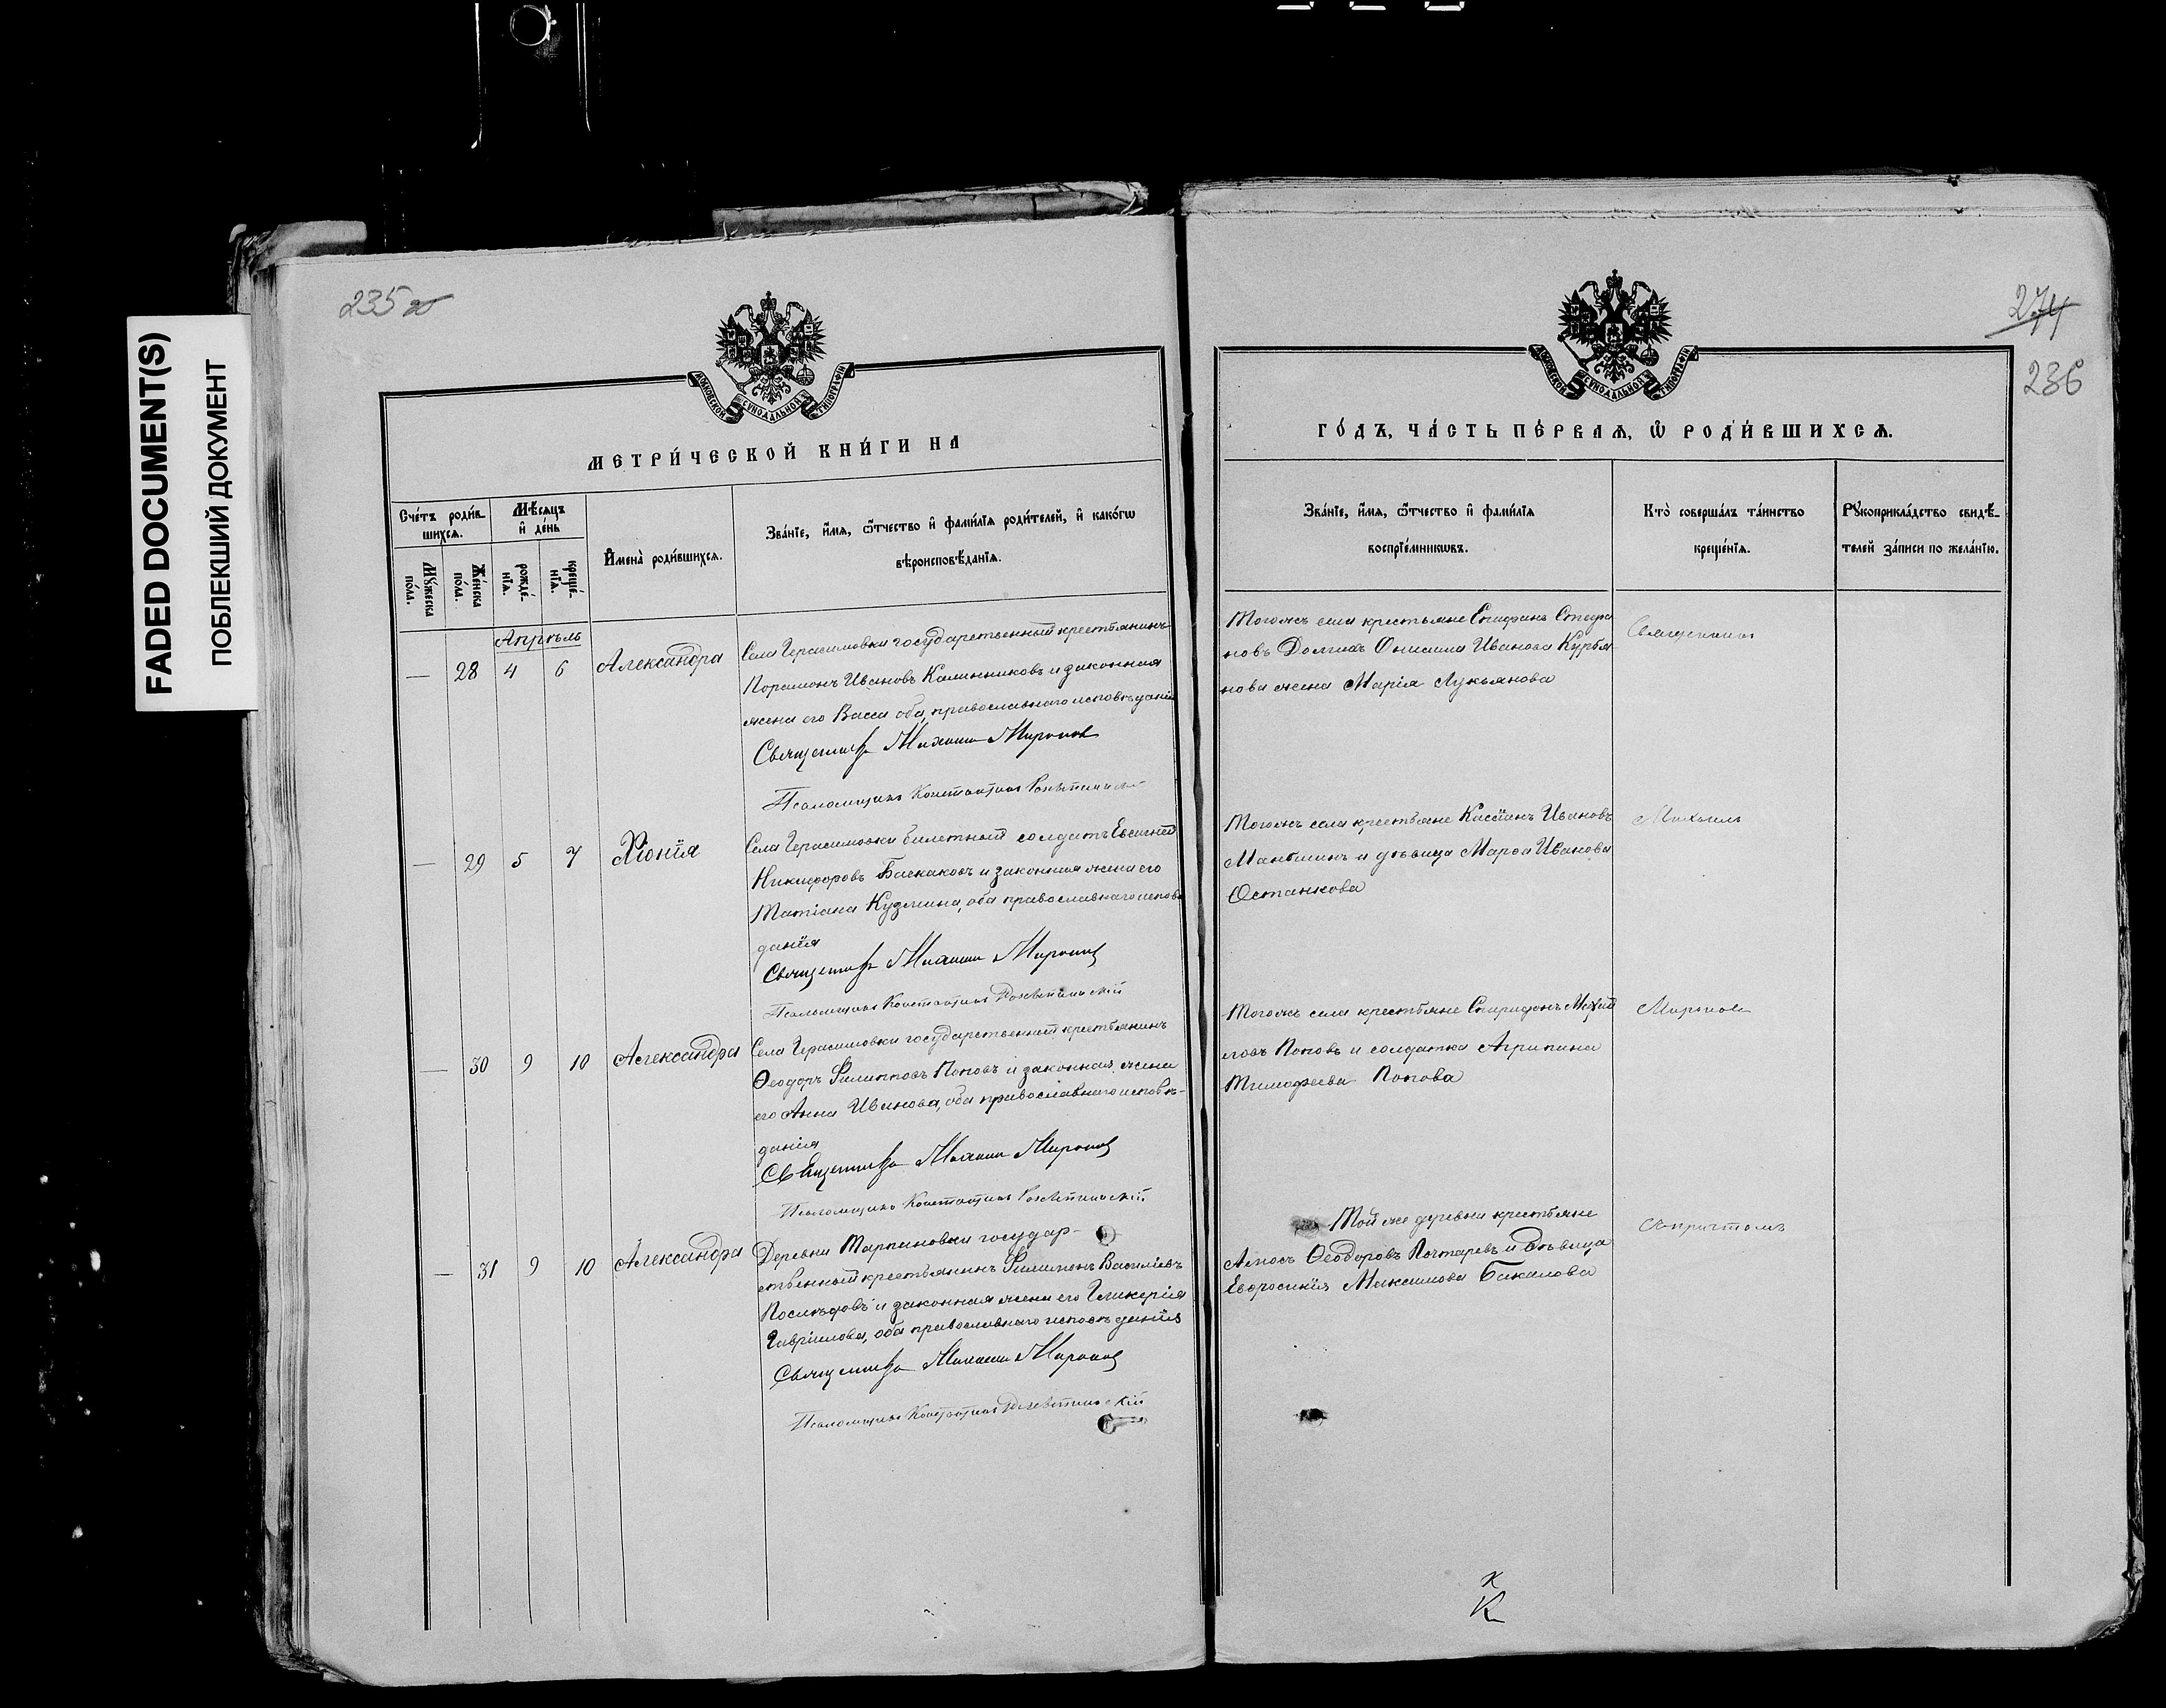 FADED DOCUMENT(S)
ПОБЛЕКШИЙ ДОКУМЕНТ
235 об
МОСКОВСКОЙ СѴНОДАЛЬНОЙ ТИПОГРАФІИ
МЕТРИ́ЧЕСКОЙ КНИ́ГИ НА
Сче́тъ роди́в-
шихсѧ.
Мѣ́сѧцъ
и҆ де́нь
И҆мена̀ роди́вшихсѧ.
Зва́нїе, и҆́мѧ, ѻ҆́тчество и҆ фамі́лїѧ роди́телей, и҆ како́гѡ
вѣроисповѣ́данїѧ.
Мꙋ́жеска
по́ла.
Же́нска
по́ла.
рожде́-
нїѧ.
креще́-
нїѧ.
Апрѣль
— 28 4 6 Александра
Села Герасимовки государственный крестьянинъ
Порамонъ Ивановъ Калинниковъ и законная
жена его Васса оба, православнаго исповѣданія
Священникъ Михаилъ Мироновъ
Псаломщикъ Константинъ
— 29 5 7 Хіонія
Села Герасимовки билетный солдатъ Евсигній
Никифоровъ Баскаковъ и законная жена его
Татіана Кузмина, оба православнаго исповѣ
данія
Священникъ Михаилъ Мироновъ
Псаломщикъ Константинъ
— 30 9 10 Александра
Села Герасимовки государственный крестьянинъ
Ѳеодоръ Филипповъ Поповъ и законная жена
его Анна Иванова, оба православнаго исповѣ-
данія
Священникъ Михаилъ Мироновъ
Псаломщикъ Константинъ
— 31 9 10 Александра
Деревни государ-
ственный крестьянинъ Филимонъ Василіевъ
Послѣдовъ и законная жена его Гликерія
Гавріилова, оба православнаго исповѣданія
Священникъ Михаилъ Мироновъ
Псаломщикъ Константинъ
274
236
МОСКОВСКОЙ СѴНОДАЛЬНОЙ ТИПОГРАФІИ
ГО́ДЪ, ЧА́СТЬ ПЕ́РВАѦ, Ѡ҆ РОДИ́ВШИХСѦ.
Зва́нїе, и҆́мѧ, ѻ҆́тчество и҆ фамі́лїѧ
воспрїе́мникѡвъ.
Кто̀ соверша́лъ та́инство
креще́нїѧ.
Рꙋкоприкла́дство свидѣ́-
телей за́писи по жела́нїю.
Тогожъ села крестьяне Епифанъ Стефа
новъ Долгихъ Онисима Иванова Курбя
нова жена Марія Лукьянова
Священникъ
Тогожъ села крестьяне Кассіанъ Ивановъ
и дѣвица Марѳа Иванова
Останкова
Михаилъ
Тогожъ села крестьяне Спиридонъ Михаи
ловъ Поповъ и солдатка Агрипина
Тимофеева Попова
Мироновъ
Той же деревни крестьяне
Ѳеодоровъ Почтаревъ и дѣвица
Евфросинія Максимова Бакалова
съ причтомъ